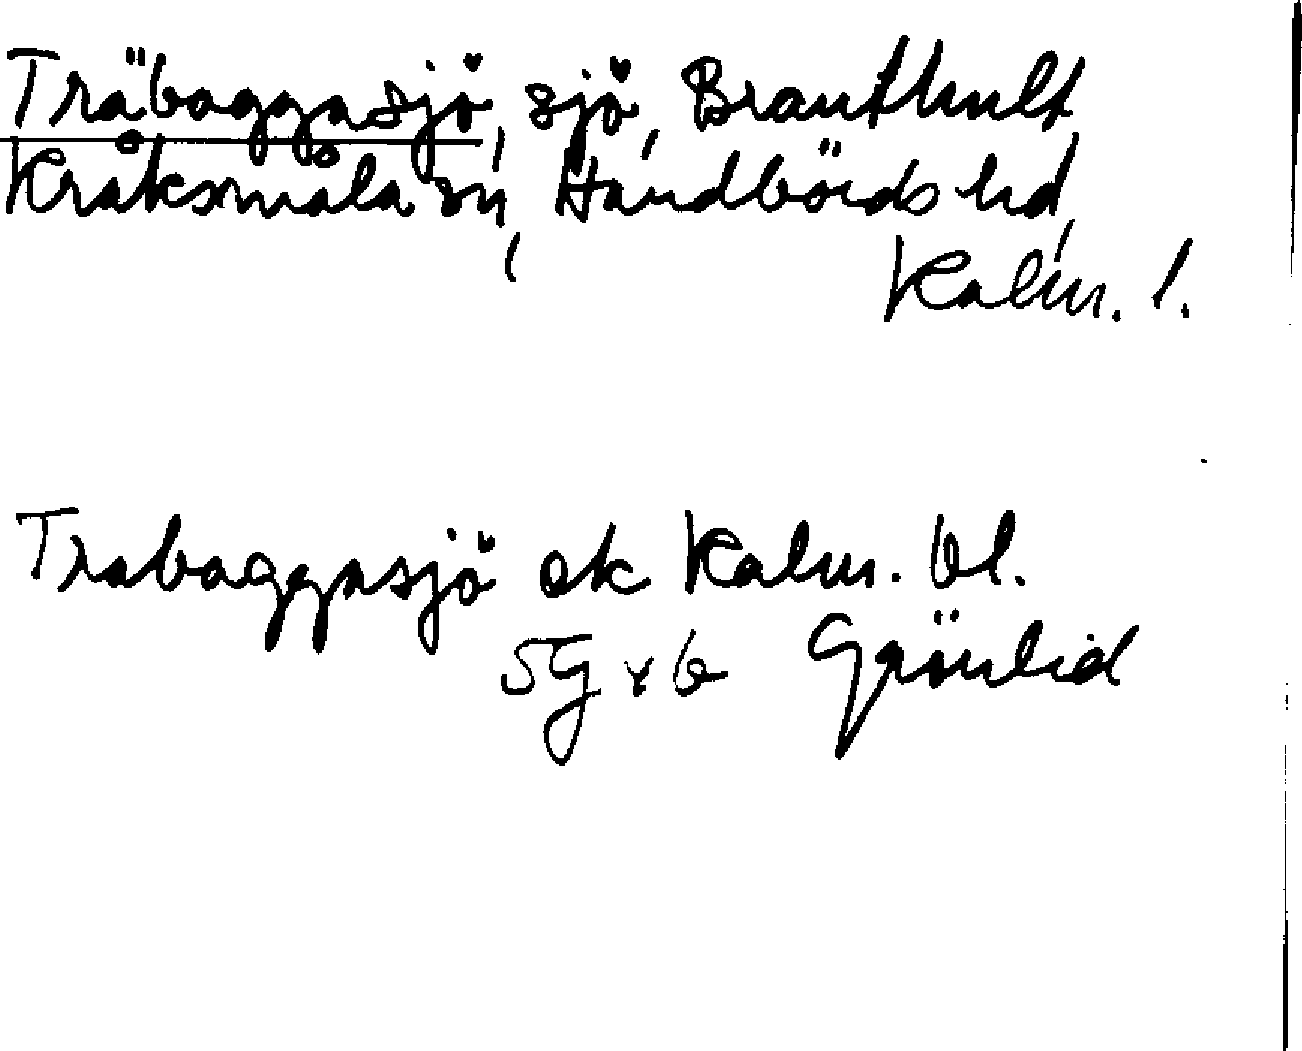 Träbaggasjö, sjö, Branthult,
Kråksmåla sn, Handbörds hd,
Kalm. l.
Trabaggasjö ek Kalm. bl.
5G Grönlid